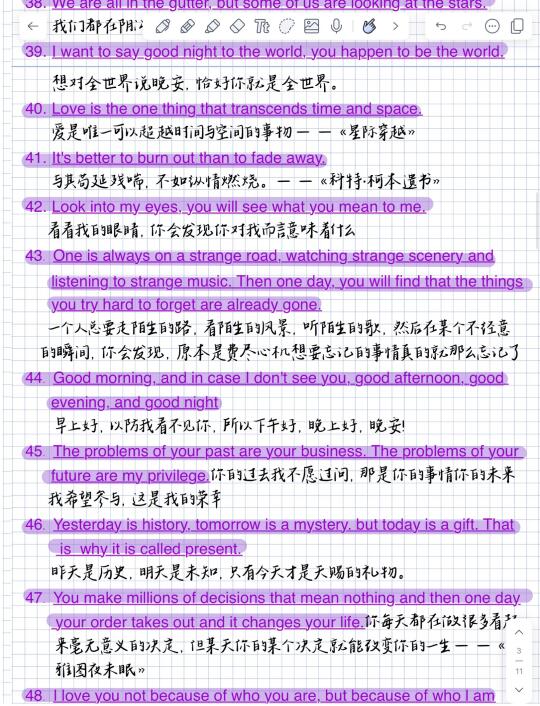 38. We are all in the gutter, but some of us are looking at the stars.
我们都在阴沟
39. I want to say good night to the world, you happen to be the world.
想对全世界说晚安, 恰好你就是全世界。
40. Love is the one thing that transcends time and space.
爱是唯一可以超越时间与空间的事物——《星际穿越》
41. It's better to burn out than to fade away.
与其苟延残喘, 不如纵情燃烧。——《科特·柯本遗书》
42. Look into my eyes, you will see what you mean to me.
看看我的眼睛, 你会发现你对我而言意味着什么
43. One is always on a strange road, watching strange scenery and
listening to strange music. Then one day, you will find that the things
you try hard to forget are already gone.
一个人总要走陌生的路, 看陌生的风景, 听陌生的歌, 然后在某个不经意
的瞬间, 你会发现, 原本是费尽心机想要忘记的事情真的就那么忘记了
44. Good morning, and in case I don't see you, good afternoon, good
evening, and good night
早上好, 以防我看不见你, 所以下午好, 晚上好, 晚安!
45. The problems of your past are your business. The problems of your
future are my privilege.你的过去我不愿过问, 那是你的事情你的未来
我希望参与, 这是我的荣幸
46. Yesterday is history, tomorrow is a mystery, but today is a gift. That
is why it is called present.
昨天是历史, 明天是未知, 只有今天才是天赐的礼物。
47. You make millions of decisions that mean nothing and then one day
your order takes out and it changes your life.你每天都在做很多看起
来毫无意义的决定, 但某天你的某个决定就能改变你的一生——《
雅图夜未眠》
3
11
48. I love you not because of who you are, but because of who I am